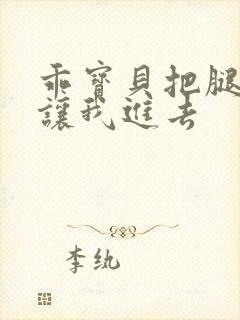 乖寶貝把腿
讓我進去
李紈